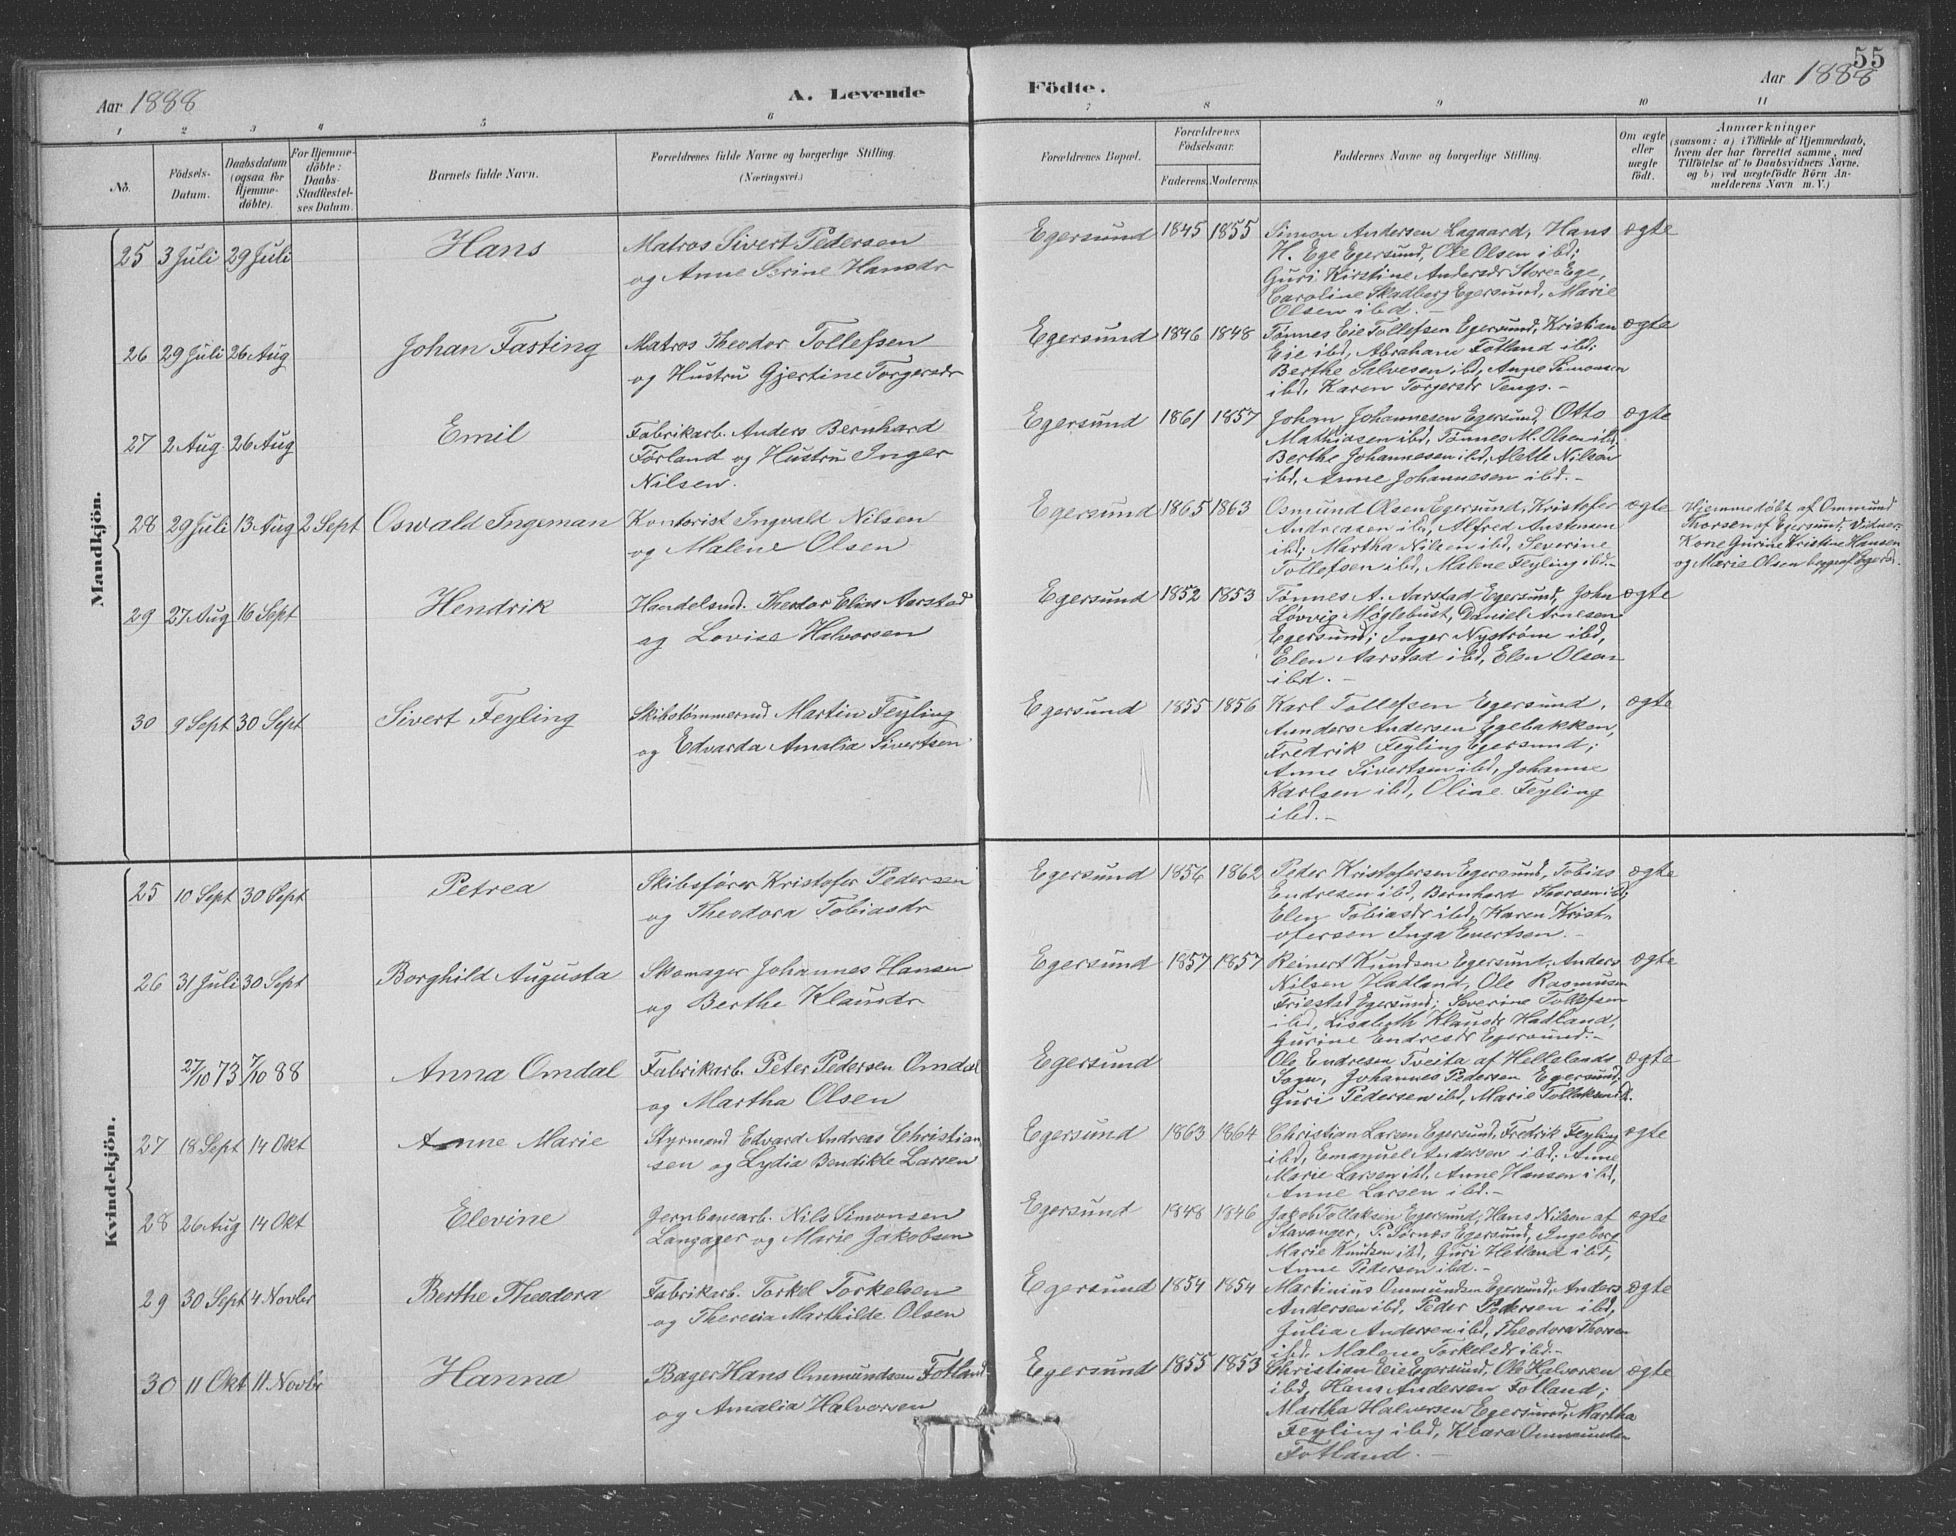 55
Aar 1888
A. Levende
Födte.
Aar 1888
1 2 3 4 5 6 7 8 9 10 11
No.
Födsels-
Datum.
Daabsdatum
(ogsaa for
Hjemme-
döbte).
For Hjemme-
döbte:
Daabs-
Stadfæstel-
ses Datum.
Barnets fulde Navn.
Forældrenes fulde Navne og borgerlige Stilling.
(Næringsvei.)
Forældrenes Bopæl.
Forældrenes
Födselsaar.
Faderens. Moderens.
Faddernes Navne og borgerlige Stilling.
Om ægte
eller
uægte
födt.
Anmærkninger
(saasom: a) i Tilfælde af Hjemmedaab,
hvem der har forrettet samme, med
Tilföielse af to Daabsvidners Navne,
og b) ved uægtefödte Börn An-
melderens Navn m. V.)
Mandkjön.
25 3 Juli 29 Juli Hans
Matros Sivert Pedersen
og Anne Serine Hansdr
Egersund 1845 1855
Simon Andersen Lagaard, Hans
H. Ege Egersund, Ole Olsen ibd;
Guri Kirstine Andersdr Store-Ege,
Caroline Skadberg Egersund, Marie
Olsen ibd. -
ægte
26 29 Juli 26 Aug Johan Fasting
Matros Theodor Tollefsen
og Hustru Gjertine Torgersdr
Egersund 1846 1848
Tønnes Eie Tollefsen Egersund, Kristian
Eie ibd, Abraham Fotland ibd;
Berthe Salvesen ibd, Anne Simonsen
ibd, Karen Torgersdr Tengs. -
ægte
27 2 Aug. 26 Aug Emil
Fabrikarb. Anders Bernhard
Førland og Hustru Inger
Nilsen.
Egersund 1861 1857
Johan Johannesen Egersund, Otto
Mathiasen ibd, Tønnes M. Olsen ibd.
Berthe Johannesen ibd, Alette Nilsen
ibd, Anne Johannesen ibd. -
ægte
28 29 Juli 13 Aug 2 Sept Oswald Ingeman
Kontorist Ingvald Nilsen
og Malene Olsen
Egersund 1865 1863
Osmund Olsen Egersund, Kristofer
Andreasen ibd, Alfred Austensen
ibd; Martha Nilsen ibd, Severine
Tollefsen ibd, Malene Feyling ibd. -
ægte
Hjemmedøbt af Ommund
Thorsen af Egersund; Vidner:
Kone Gurine Kristine Hansen
og Marie Olsen begge af Egersd.
29 27 Aug 16 Sept Hendrik
Handelsmd. Theodor Elias Aarstad
og Lovise Halvorsen
Egersund 1852 1853
Tønnes A. Aarstad Egersund, John
Løvvig Møglebust, Daniel Arnesen
Egersund; Inger Nystrøm ibd,
Elen Aarstad ibd, Elen Olsen
ibd. -
ægte
30 9 Sept 30 Sept Sivert Feyling
Skibstømmermd Martin Feyling
og Edvarda Amalia Sivertsen
Egersund 1855 1856
Karl Tollefsen Egersund,
Anders Andersen Egebakken,
Fredrik Feyling Egersund;
Anne Sivertsen ibd, Johanne
Karlsen ibd, Oline Feyling
ibd. -
ægte
Kvindekjön.
25 10 Sept 30 Sept Petrea
Skibsfører Kristofer Pedersen
og Theodora Tobiasdr
Egersund 1856 1862
Peder Kristofersen Egersund, Tobias
Endresen ibd, Bernhard Thorsen ibd;
Elen Tobiasdr ibd, Karen Krist-
ofersen Inga Evertsen. -
ægte
26 31 Juli 30 Sept Borghild Augusta
Skomager Johannes Hansen
og Berthe Klausdr
Egersund 1857 1857
Reinert Knudsen Egersund, Anders
Nilsen Hadland, Ole Rasmusen
Friestad Egersund; Severine Tollefsen
ibd, Lisabeth Klausdr Hadland,
Gurine Endresdr Egersund. -
ægte
27/10 73 7/10 88 Anna Omdal
Fabrikarb. Peter Pedersen Omdal
og Martha Olsen
Egersund
Ole Endresen Tveita af Hellelands
Sogn, Johannes Pedersen Egersund.
Guri Pedersen ibd, Marie Tollaksen ibd.
ægte
27 18 Sept 14 Okt Anne Marie
Styrmand Edvard Andreas Christian
sen og Lydia Bendikte Larsen
Egersund 1863 1864
Christian Larsen Egersund, Fredrik Feyling
ibd, Emanuel Andersen ibd; Anne
Marie Larsen ibd, Anne Hansen ibd,
Anne Larsen ibd. -
ægte
28 26 Aug 14 Okt Elevine
Jernbanearb. Nils Simonsen
Langager og Marie Jakobsen
Egersund 1848 1846
Jakob Tollaksen Egersund, Hans Nilsen af
Stavanger, P. Sørnes Egersund, Ingeborg
Marie Knudsen ibd, Guri Hetland ibd,
Anne Pedersen ibd. -
ægte
29 30 Sept 4 Novbr Berthe Theodora
Fabrikarb. Torkel Torkelsen
og Theresia Marthilde Olsen
Egersund 1854 1854
Martinius Ommundsen Egersund, Anders
Andersen ibd, Peder Pedersen ibd,
Julia Andersen ibd, Theodora Thorsen
ibd, Malene Torkelsdr ibd. -
ægte
30 11 Okt 11 Novbr Hanna
Bager Hans Ommundsen Fotland
og Amalia Halvorsen
Egersund 1855 1853
Christian Eie Egersund, Ole Halvorsen
ibd, Hans Andersen Fotland;
Martha Halversen Egersund, Martha
Feyling ibd, Klara Ommundsen
Fotland. -
ægte